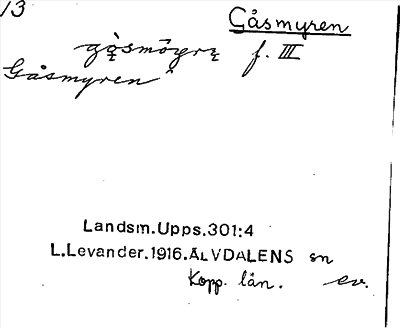 13
Gåsmyren
gåsmögrę f. III
Gåsmyren
Landsm.Upps.301:4
L.Levander.1916.ÄLVDALENS sn
Kopp. län. ev.